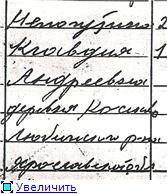 Клавдия 1
Андреевна
деревня
Любимского р-на
Ярославской обл
Увеличить